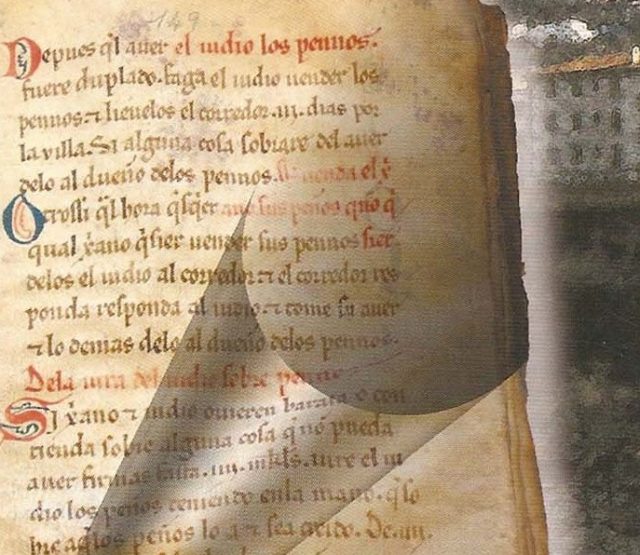 149
Depues ql auer el iudio los pennos.
fuere duplado. faga el iudio uender los
pennos. ⁊ lieuelos el corredor .iii. dias por
la villa. Si alguna cosa sobrare del auer
delo al dueño delos pennos.
Otrossi ql hora qsqer sus peños qno q
qual xano qsier uender sus pennos
delos el iudio al corredor ⁊ el corredor res
ponda responda al iudio. ⁊ tome su auer
⁊ lo demas delo al dueño delos pennos.
Dela iura del iudio sobre
Si xano ⁊ iudio ouieren baraia o con
tienda sobre alguna cosa q no pueda
auer firmas fasta .iiii. mls. iure el iu
dio los peños teniendo enla mano. q so
bre aqlos peños lo a ⁊ sea creido. De